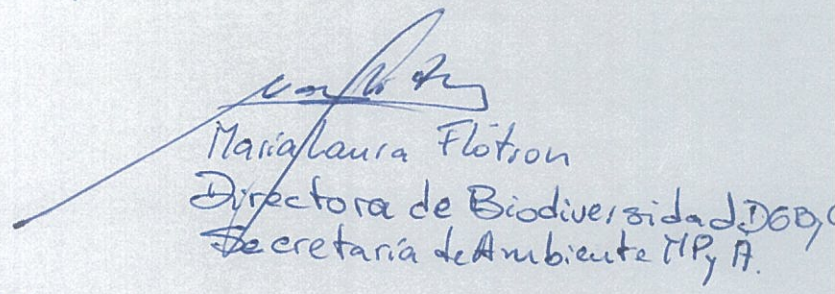 María Laura Flötron
Directora de Biodiversidad DGB,C
Secretaría de Ambiente MP y A.